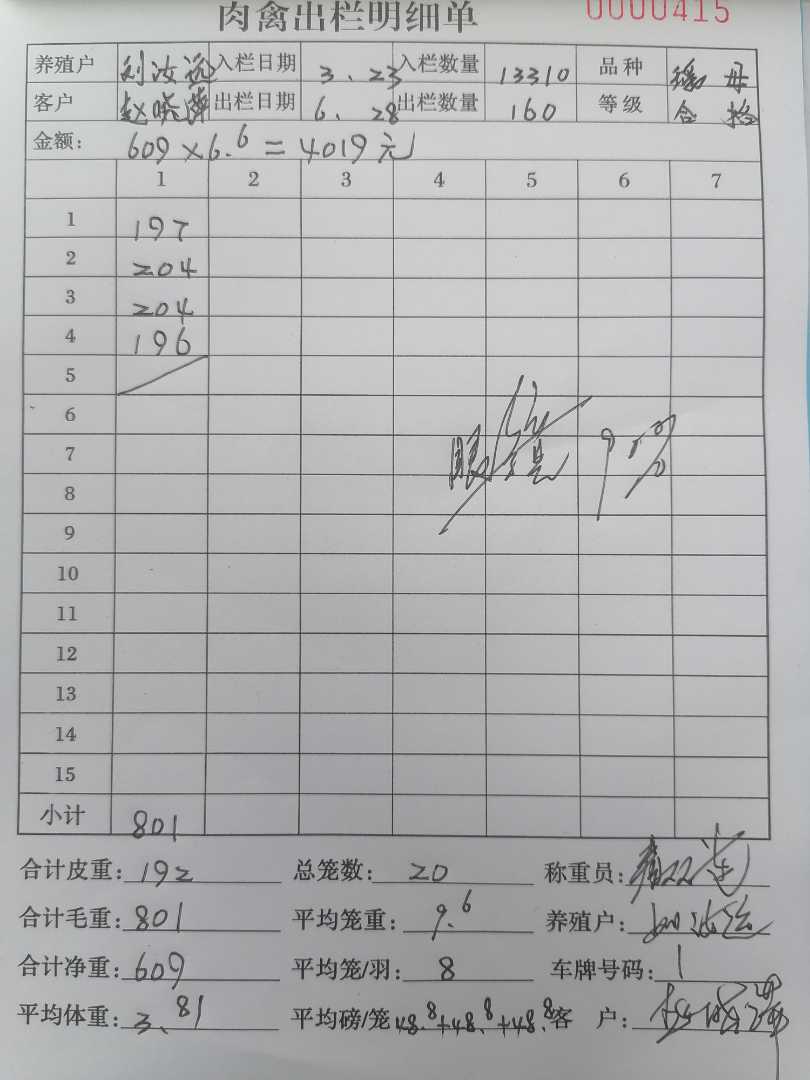 肉禽出栏明细单 0000415
养殖户 刘汝 入栏日期 3.23 入栏数量 13310 品种 母
客户 赵晓萍 出栏日期 6.28 出栏数量 160 等级 合格
金额: 609×6.6=4019元
1 2 3 4 5 6 7
1 197
2 204
3 204
4 196
5
6
7
8
9
10
11
12
13
14
15
小计 801
合计皮重: 192 总笼数: 20 称重员:
合计毛重: 801 平均笼重: 9.6 养殖户:
合计净重: 609 平均笼/羽: 8 车牌号码: 1
平均体重: 3.81 平均磅/笼 48.8+48.8+48.8 客 户: